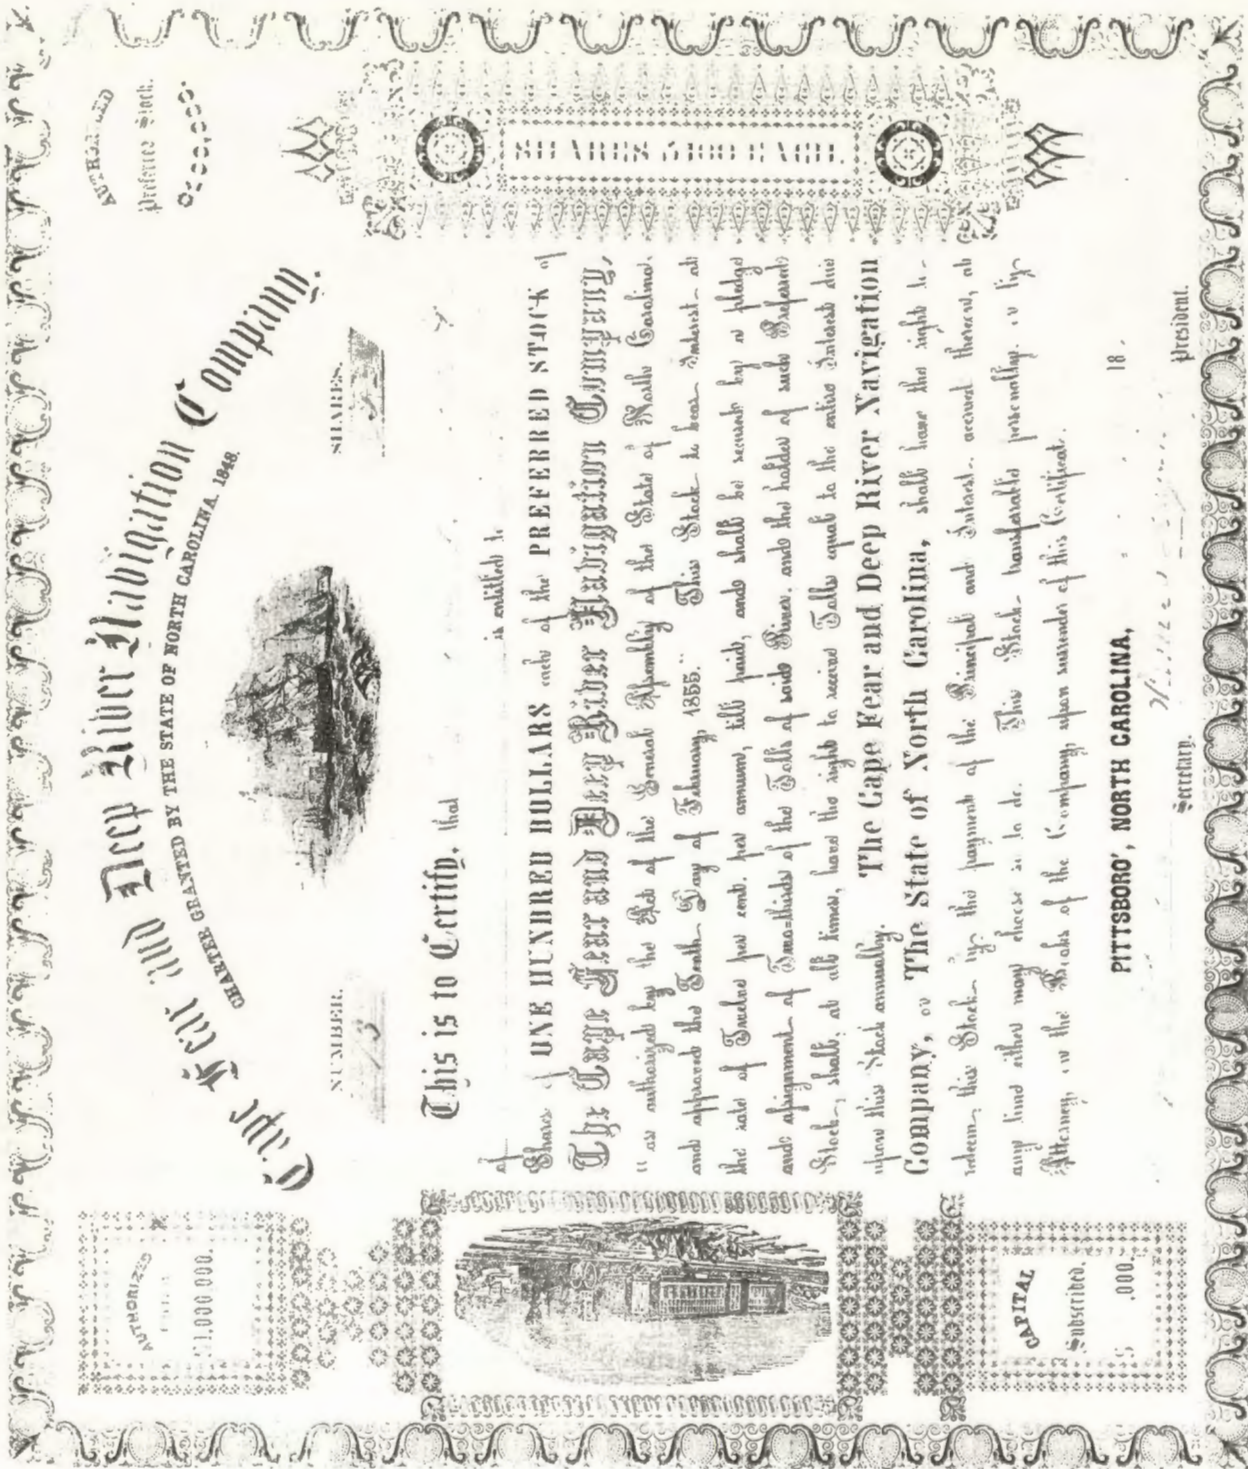 Cape Fear and Deep River Navigation Company.
CHARTER GRANTED BY THE STATE OF NORTH CAROLINA. 1848.
AUTHORIZED
$1,000,000.
AUTHORIZED
Preferred Stock.
NUMBER.
SHARES.
This is to Certify, that
of is entitled to
Shares of ONE HUNDRED DOLLARS each of the PREFERRED STOCK of
The Cape Fear and Deep River Navigation Company,
"as authorized by the Act of the General Assembly of the State of North Carolina,
and approved the Tenth Day of February, 1855." This Stock to bear Interest at
the rate of Twelve per cent. per annum, till paid, and shall be secured by a pledge
and assignment of Two-thirds of the Tolls of said River, and the holder of such Preferred
Stock, shall, at all times, have the right to receive Tolls equal to the entire Interest due
upon this Stock annually. The Cape Fear and Deep River Navigation
Company, or The State of North Carolina, shall have the right to
redeem this Stock by the payment of the Principal and Interest accrued thereon, at
any time either may choose so to do. This Stock transferable personally, or by
Attorney, on the Books of the Company, upon surrender of this Certificate.
PITTSBORO', NORTH CAROLINA, 18
Secretary. President.
CAPITAL
Subscribed.
$ ,000.
SHARES $100 EACH.